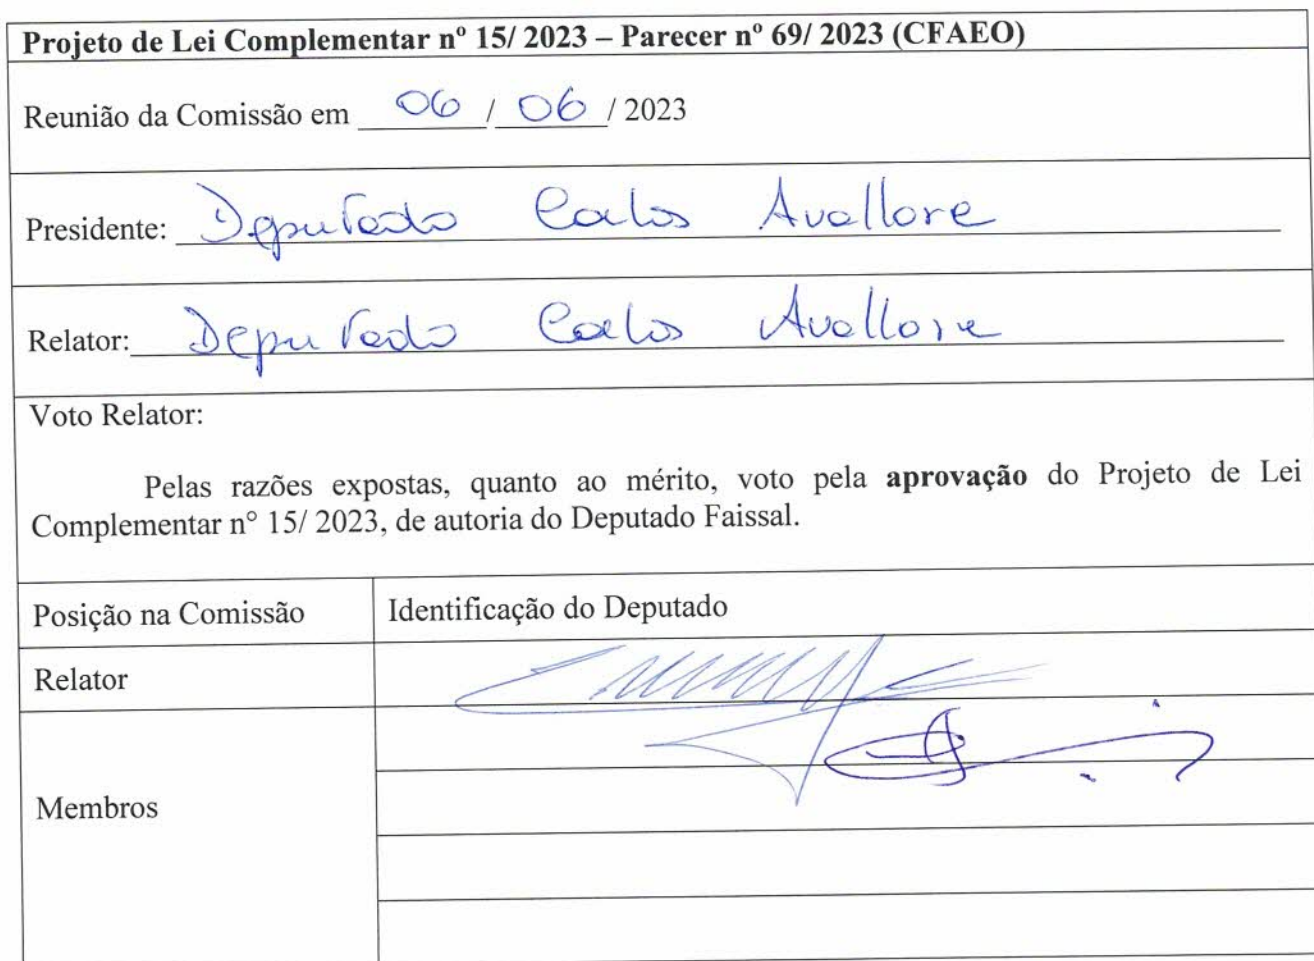 Projeto de Lei Complementar nº 15/ 2023 – Parecer nº 69/ 2023 (CFAEO)
Reunião da Comissão em 06 / 06 / 2023
Presidente: Deputado Carlos Avallone
Relator: Deputado Carlos Avallone
Voto Relator:
Pelas razões expostas, quanto ao mérito, voto pela aprovação do Projeto de Lei
Complementar n° 15/ 2023, de autoria do Deputado Faissal.
Posição na Comissão Identificação do Deputado
Relator
Membros